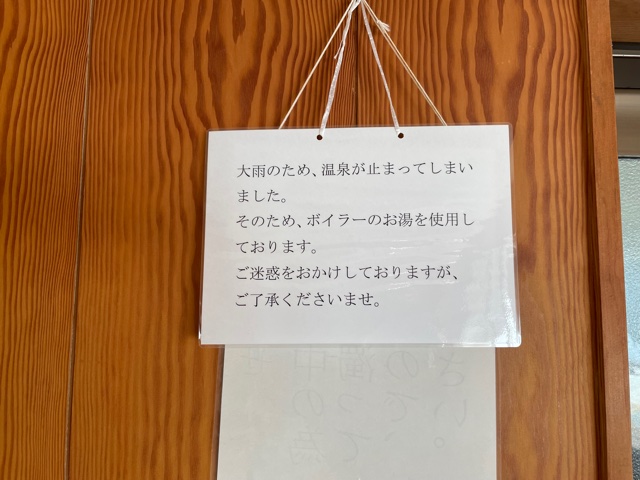 大雨のため、温泉が止まってしまい
ました。
そのため、ボイラーのお湯を使用し
ております。
ご迷惑をおかけしておりますが、
ご了承くださいませ。